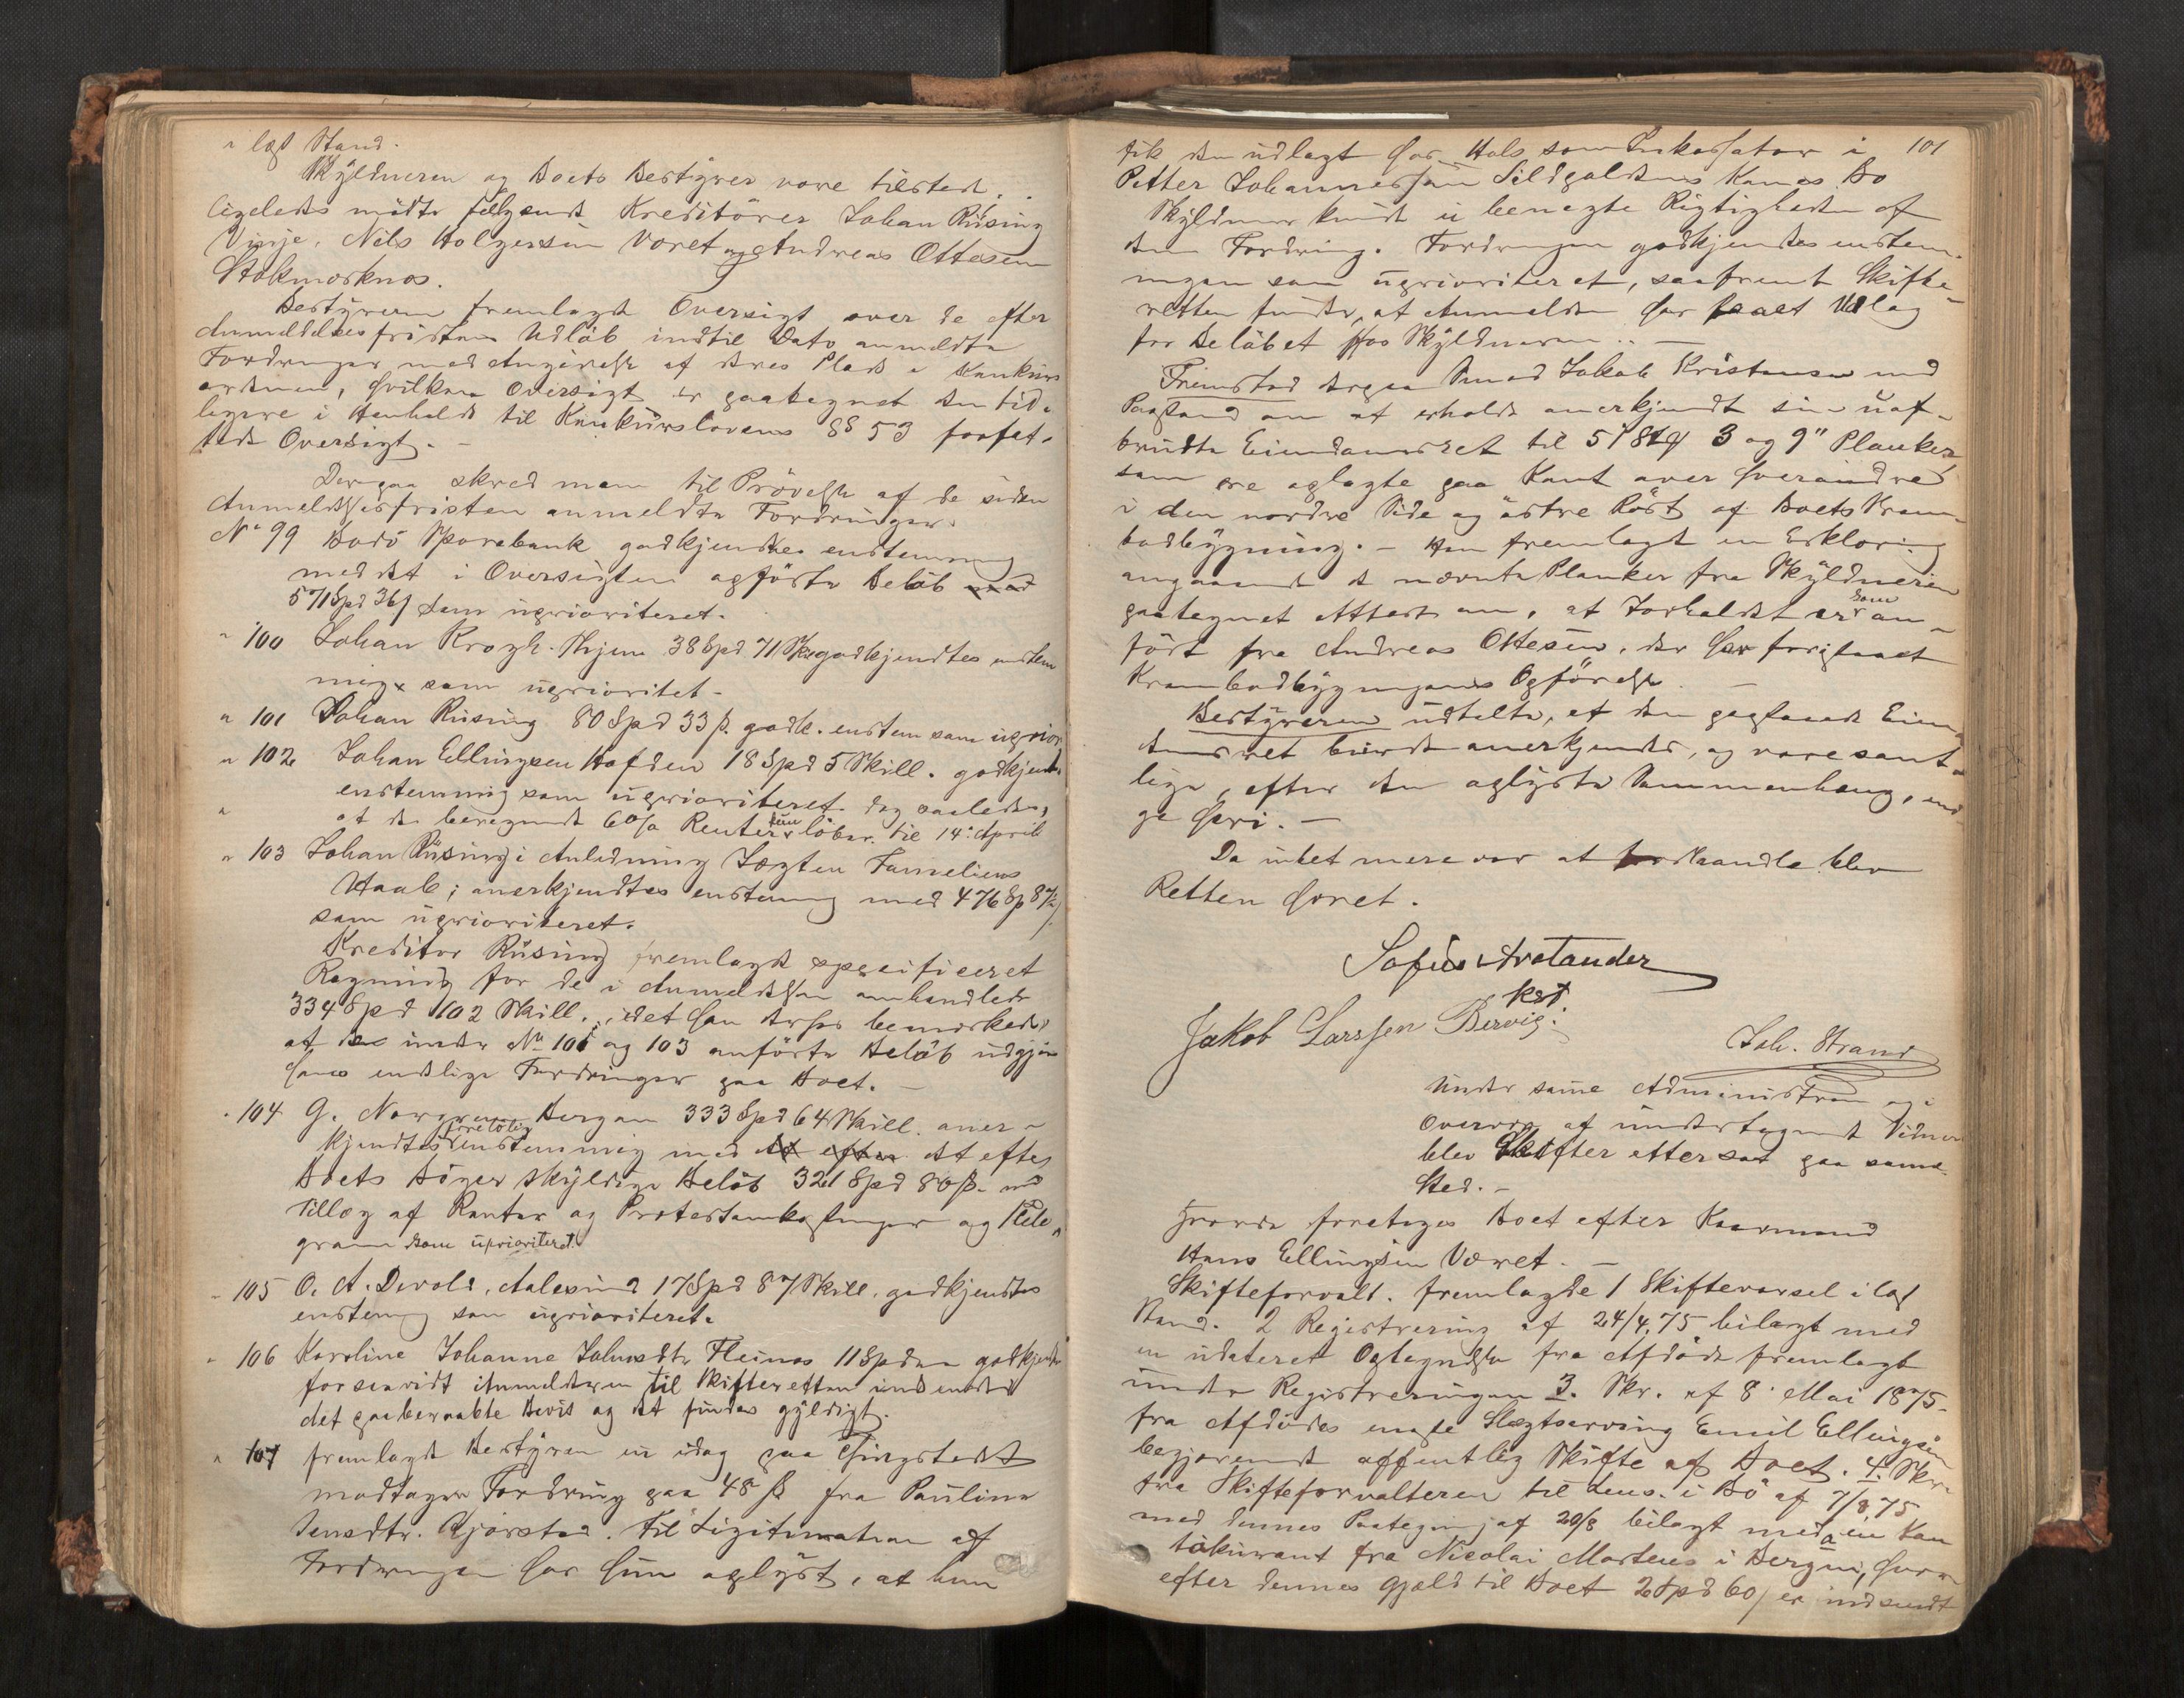 i lagl Stand.
Skyldneren og Boets Bestyrer vare tilstede.
Ligeledes mødte følgende Kreditorer Johan Rüsing
Vinje, Nils Holgersen Været og Andreas Ottesen
Stokmarknæs.
Bestyreren fremlagde Oversigt over de efter
Anmeldelsesfristens Udløb indtil Dato anmeldte
Fordringer med Angivelse af deres Plads i Konkurs
ordenen, hvilken Oversigt er paategnet den tid-
ligere i Henhold til Konkurslovens §§ 53 forfat-
tede Oversigt. –
Derpaa skred man til Prøvelse af de siden
Anmeldelsesfristen anmeldte Fordringer.
No 99 Bodö Sparebank godkjendtes enstemmig
med det i Oversigten opførte Beløb
571 Spd 36 s som uprioriteret.
" 100 Johan Krogh. 38 Spd 71 Sk godkjendtes enstem
mig som uprioritet –
" 101 Johan Rüsing 80 Spd 33 s. godk. enstem som uprior
" 102 Johan Ellingsen Hofden 18 Spd 5 Skill. godkjendt
enstemmig som uprioriteret dog saaledes,
at de beregnede 6% Renter kun løber til 14: April
" 103 Johan Rüsing i Anledning Jægten Familiens
Haab; anerkjendtes enstemmig med 476 Sp 87 s
som uprioriteret.
Kreditor Rüsing fremlagde specificeret
Regning for de i Anmeldelsen omhandlede
334 Spd 102 Skill., idet han derhos bemærkede,
at de under No 101 og 103 anførte Beløb udgjør
hans endelige Fordringer paa Boet. –
" 104 G. Bergen 333 Spd 64 Skill. aner-
kjendtes foreløbig enstemmig med det efter
Boets Bøger skyldige Beløb 321 Spd 80 s. med
Tillæg af Renter og Protestomkostninger og Tele-
gram som uprioriteret.
" 105 O. A. Devold, Aalesund 17 Spd 87 Skill. godkjendtes
enstemig som uprioriteret.
" 106 Karoline Johanne Johnsdtr Fleinæs 11 Spd godkjendt
forsaavidt Anmelderen til Skifteretten indsender
det paaberaabte Bevis og det findes gyldigt.
" 107 fremlagde Bestyreren en idag paa Thingstedet
modtagen Fordring paa 48 s fra Pauline
Jensdtr. Kjørstad. Til Legitimation af
Fordringen har hun oplyst, at hun
101
fik den udlagt hos Hals som Inkassator i
Petter Johannessen Sildpoldens Konas Bo
Skyldneren kunde ei benegte Rigtigheden af
den Fordring. Fordringen godkjendtes enstem-
migen som uprioriteret, saafremt Skifte-
retten finder, at Anmelden har faaet Udlæg
for Beløbet hos Skyldneren. –
Fremstod derpaa Smed Jakob Kristensen med
Paastand om at erholde anerkjendt sin uaf-
brudte Eiendomsret til 3 og 9" Planker
som ere oplagte paa Kant over hverandre
i den nordre Side og østre Røst af Boets Kram-
bodbygning. – Han fremlagde en Erklæring
angaaende de nævnte Planker fra Skyldneren
paategnet Attest om, at Forholdet er som an-
ført fra Andreas Ottesen, der har forestaaet
Krambodbygningens Opførelse. –
Bestyreren udtalte, at den paastaaede Eien-
domsret burde anerkjendes, og vare samt-
lige, efter den oplyste Sammenhæng, eni-
ge heri. –
Da intet mere var at forhandle blev
Retten hævet.
Sofus Arctander
kst
Jakob Larssen Bervig.
Joh. Strand
Under samme Administration og i
Overvær af undertegnede Vidner
blev Skifteret sat paa samme
Sted. –
Hvorda foretoges Boet efter Kaarmand
Hans Ellingsen Været. –
Skifteforvalt. fremlagde 1 Skiftevarsel i lagl
Stand. 2 Registrering af 24/4.75 bilagt med
en udateret Optegnelse fra Afdøde fremlagt
under Registreringen 3. Skr. af 8. Mai 1875
fra Afdødes eneste Slægtsarving Emil Ellingsen
begjærende offentlig Skifte af Boet. 4. Skr.
fra Skifteforvalteren til Lens. i Bø af 7/8 75
med dennes Paategning af 20/8 bilagt med a en Kon
tokurant fra Nicolai Martens i Bergen, hvor-
efter dennes Gjæld til Boet 2 Spd 60 s er indsendt